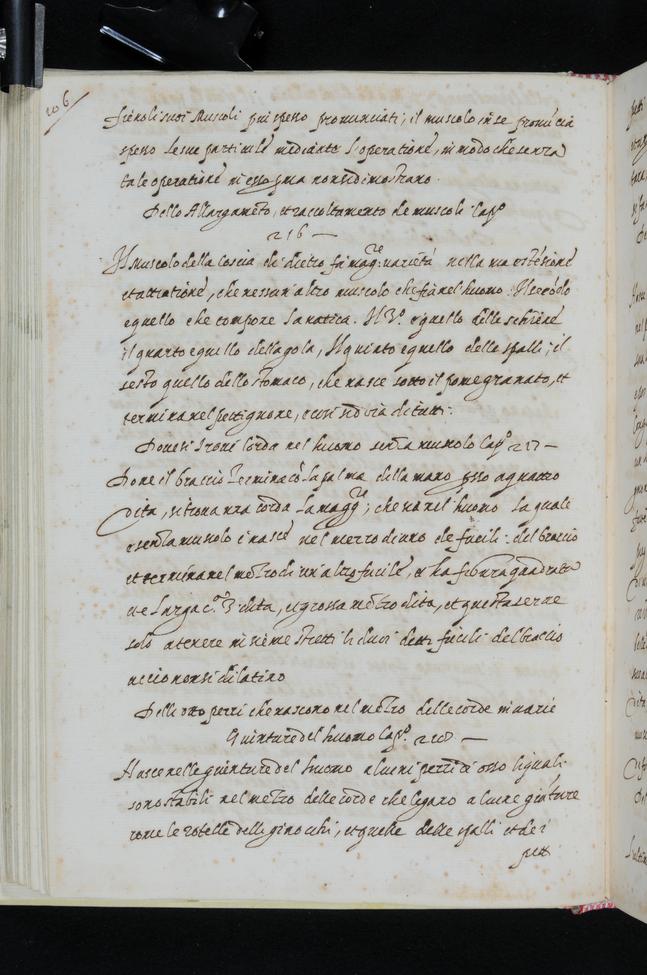 106
sieno li suoi muscoli piu spesso pronunciati; il muscolo in se pronūcia
spesso le sue particule mediante l'operatione, in modo che senza
tale operatione in esso pma non si dimostrano.
Dello Allargamēto, et raccoltamento de muscoli Capº
216 —
Il muscolo della coscia di dietro fa magg.re varietà nella sua estēsione
et attratione, che nessun altro muscolo che sia nel huomo. Il secōdo
e quello che compone la natica. Il 3º e quello delle schiene
il quarto e quello della gola, Il quinto e quello delle spalli; il
sesto quello dello stomaco, che nasce sotto il pomegranato, et
termina nel pettignone, e cosi si dirà di tutti.
Dove si trovi corda nel huomo senza muscolo Capº 217 —
Dove il braccio termina cō la palma della mano presso a quattro
dita, si trova una corda la magg.re, che sia nel huomo la quale
e senza muscolo e nasce nel mezzo di uno de fucili del braccio
et termina nel mezzo di un'altro fucile, et ha figura quadrata
et e larga c.ª 3 dita, e grossa mezzo dito, et questa serve
solo a tenere insieme stretti li duoi detti fucili del braccio
accio non si dilatino
Delli otto pezzi che nascono nel mezzo delle corde in varie
Giunture del huomo Capº 218 —
Nasce nelle giunture del huomo alcuni pezzi di osso liquali
sono stabili nel mezzo delle corde che legano alcune giūture
come le rotelle delli ginocchi, et quelle delle spalli et dei
pett